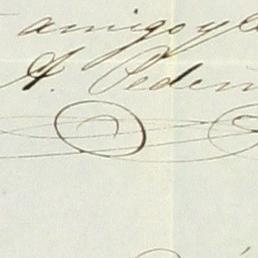 amigo y
A. Peder